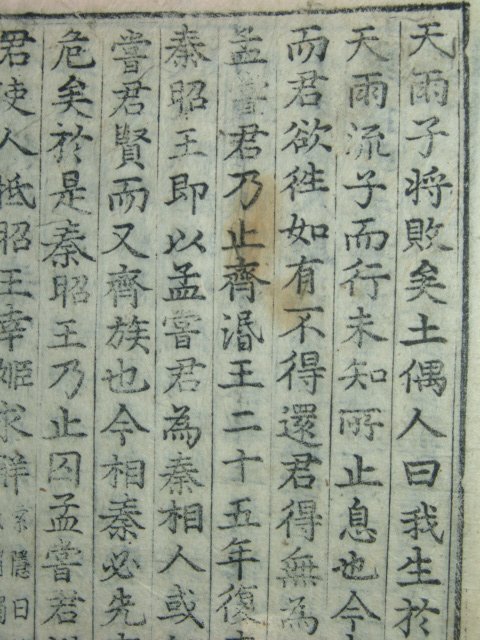 天雨子将敗矣土偶人曰我生於
天雨流子而行未知所止息也今
而君欲徃如有不得還君得無為
孟嘗君乃止齊湣王二十五年復
秦昭王即以孟嘗君為秦相人或
嘗君賢而又齊族也今相秦必先
危矣於是秦昭王乃止囚孟嘗君
君使人抵昭王幸姬求解索隱曰